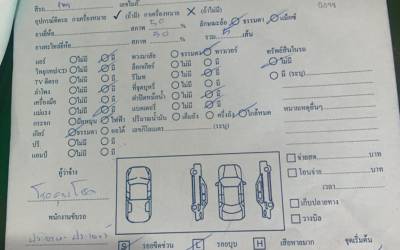 สีรถ
อุปกรณ์ติดรถ กาเครื่องหมาย ✓ (ถ้ามี) กาเครื่องหมาย ✗ (ถ้าไม่มี)
สภาพ 50 % ลักษณะล้อ ธรรมดา แม็กซ์
ยางอะไหล่ยี่ห้อ สภาพ 50 % รวม 5 เส้น
แอร์ ไม่มี มี พวงมาลัย ธรรมดา พาวเวอร์ ทรัพย์สินในรถ
วิทยุ/เทป/CD ไม่มี มี ล็อกเกียร์ ไม่มี มี ไม่มี
TV ติดรถ ไม่มี มี รีโมท ไม่มี มี มี (ระบุ)
ลำโพง ไม่มี มี ที่จุดบุหรี่ ไม่มี มี
เครื่องมือ ไม่มี มี ฝาปิดหม้อน้ำ ไม่มี มี
แม่แรง ไม่มี มี แบตเตอรี่ ไม่มี มี
กระจก มือหมุน ไฟฟ้า ปริมาณน้ำมัน เต็มถัง ครึ่งถัง ใกล้หมด หมายเหตุอื่นๆ
เกียร์ ธรรมดา ออโต้ เลขกิโลเมตร (ระบุ)
ปรี ไม่มี มี
แอมป์ ไม่มี มี
ผู้ว่าจ้าง
จ่ายสด บาท
โอนจ่าย บาท
เวลา
พนักงานขับรถ
เก็บปลายทาง
วางบิล
S รอยขีดข่วน C รอยบุบ H เสียหายมาก จุดเริ่มต้น